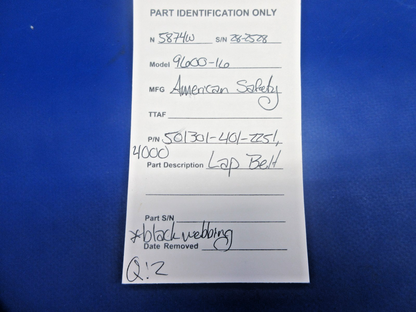 PART IDENTIFICATION ONLY
N 5874W S/N 28-2528
Model 9600-16
MFG American Safety
TTAF
P/N 501301-401-2251,
4000
Part Description Lap Belt
Part S/N
*black webbing
Date Removed
Q:2